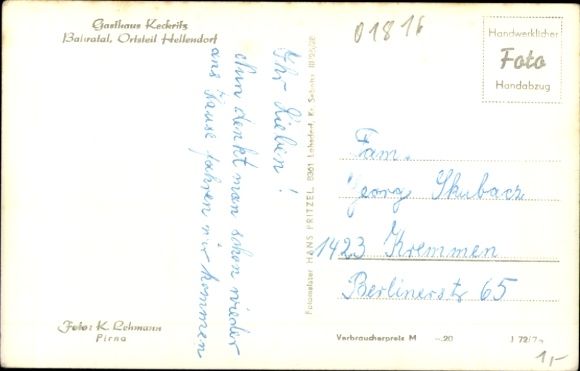 Gasthaus Keckritz
Bahratal, Ortsteil Hellendorf
01816
Handwerklicher
Foto
Handabzug
Ihr Lieben!
Nun denkt man schon wieder
ans Hause fahren wir kommen
Fotomeister HANS FRITZEL, 8361 Lohsdorf, Kr. Sebnitz
Fam.
Georg Skubacz
1423 Kremmen
Berlinerstr 65
Foto: K. Lehmann
Pirna
Verbraucherpreis M -.20
J 72/74
1,-